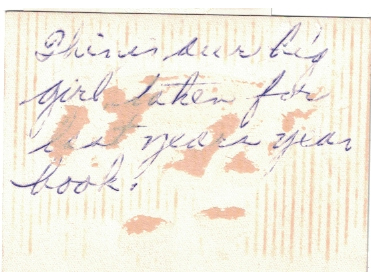 This is our big
girl taken for
last years year
book.